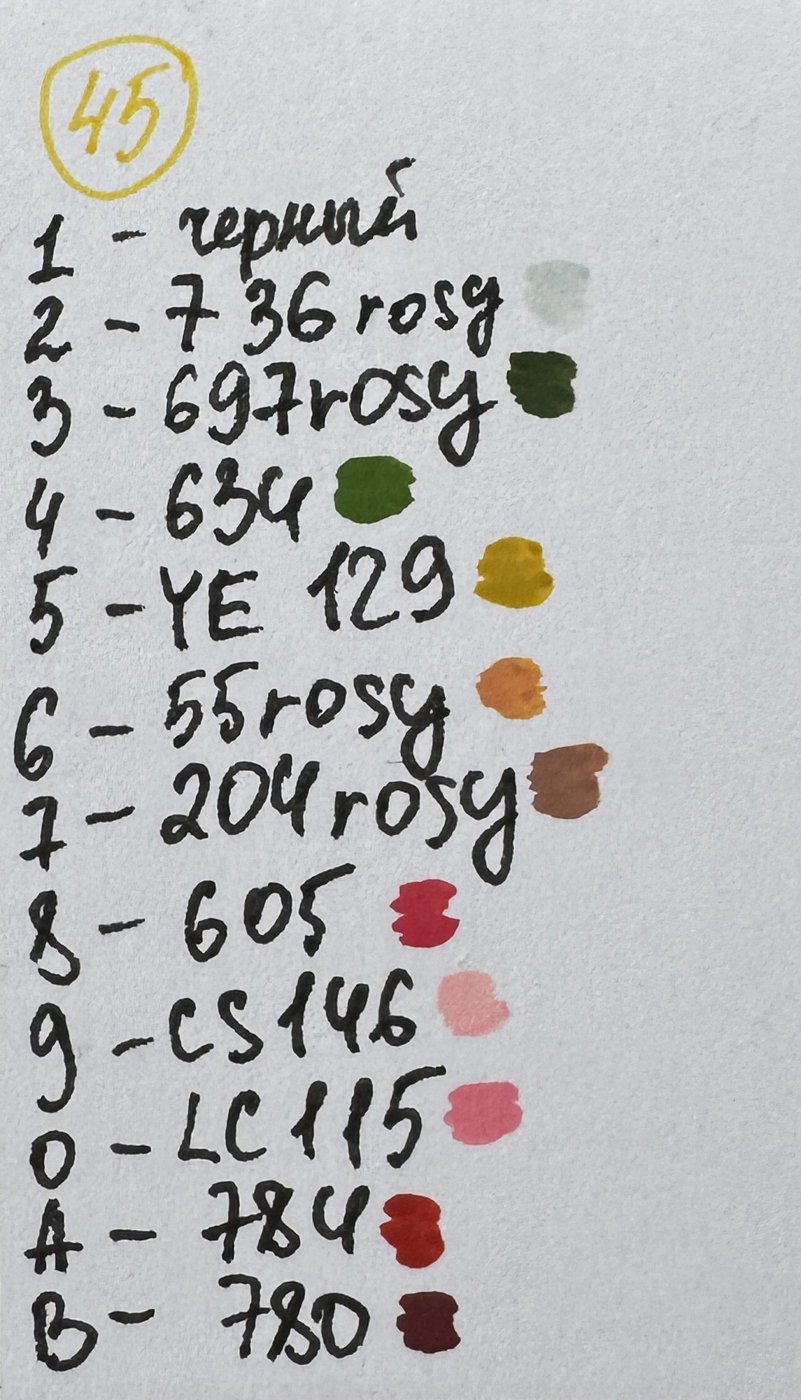 45
1 - черный
2 - 736 rosy
3 - 697rosy
4 - 634
5 - YE 129
6 - 55rosy
7 - 204rosy
8 - 605
9 - CS146
0 - LC115
A - 784
B - 780